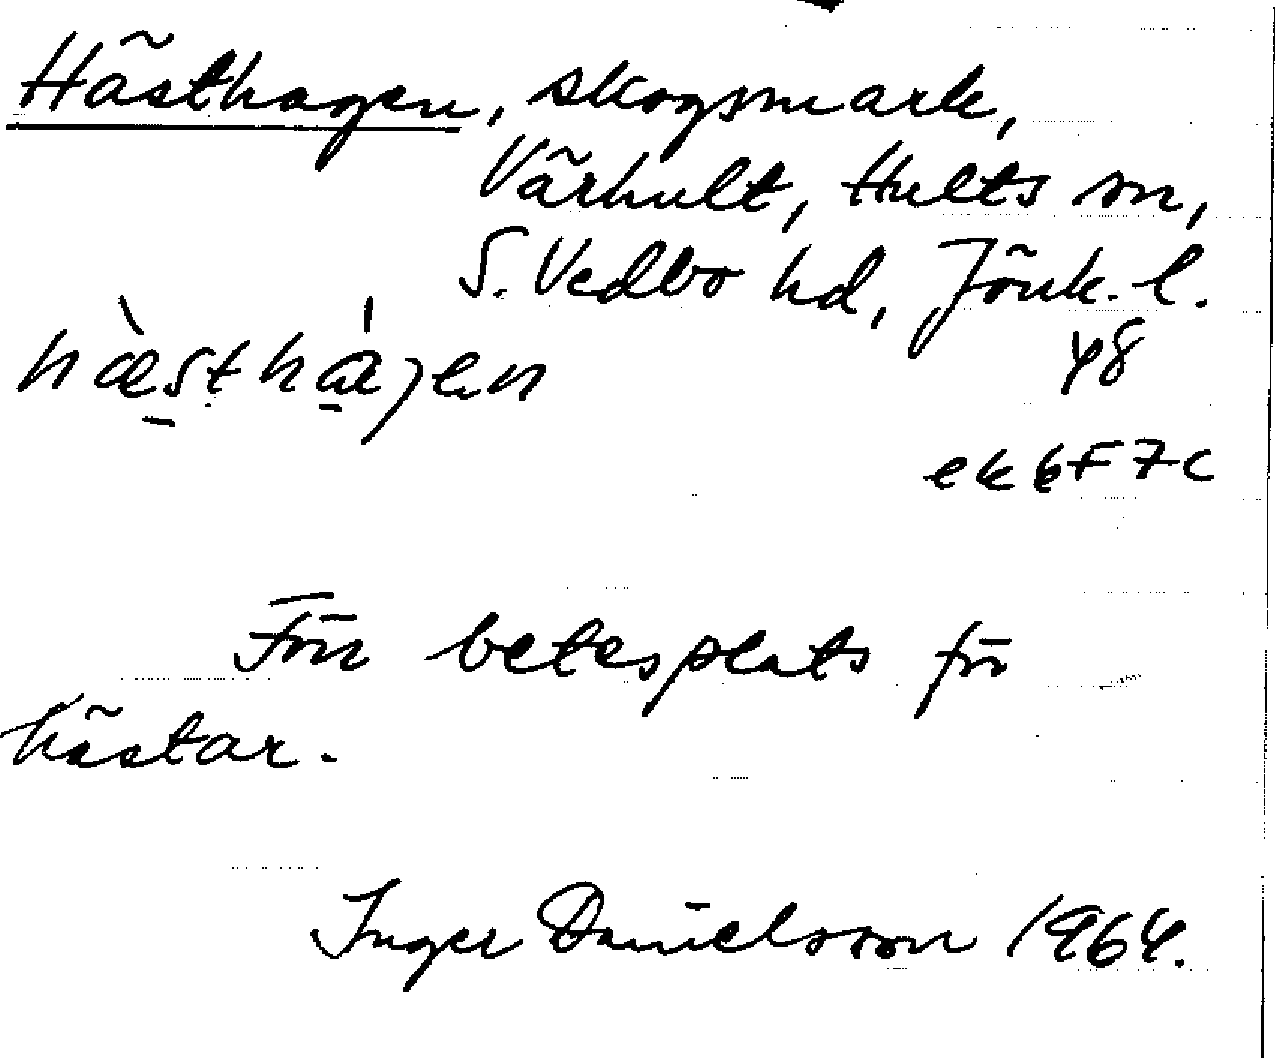 Hästhagen, skogsmark,
Värhult, Hults sn,
S. Vedbo hd, Jönk. l.
hæ̀stha̍gen 48
ek 6F7c
Förr betesplats för
hästar.
Inger Danielsson 1964.